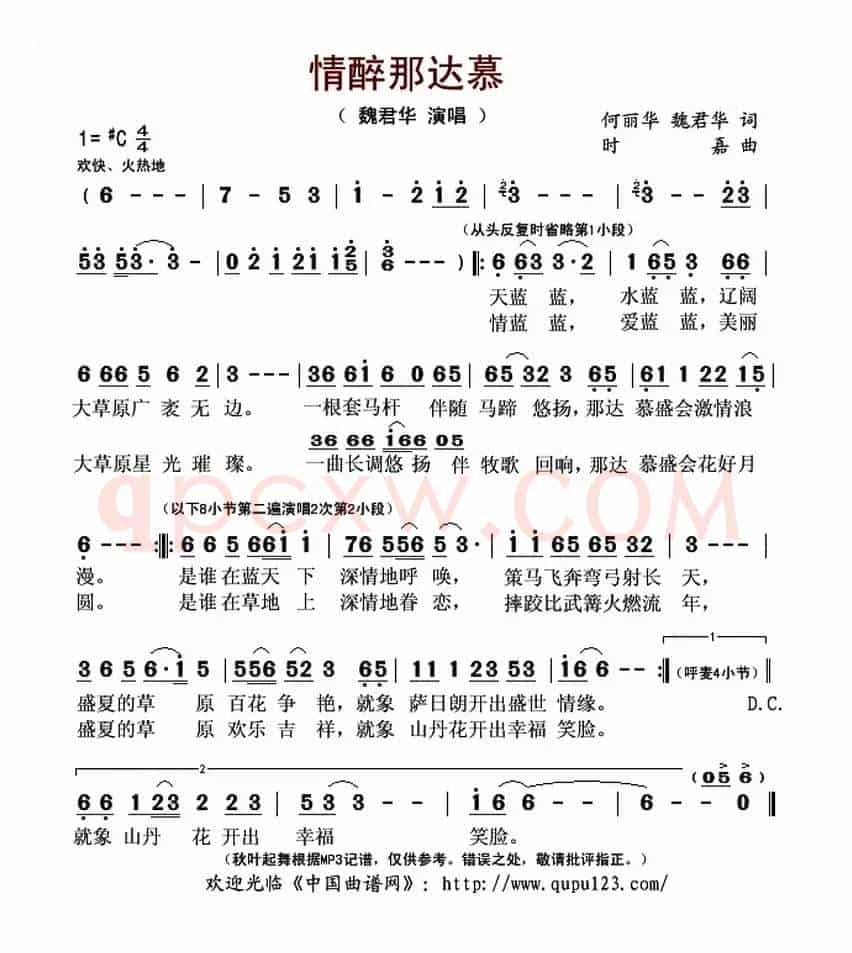 情醉那达慕
（ 魏君华 演唱 ）
何丽华 魏君华 词
1= #C 4/4
时 嘉 曲
欢快、火热地
( 6 - - - | 7 - 5 3 | 1 - 2 1 2 | 2 3 - - - | 2 3 - - 2 3 |
（从头反复时省略第1小段）
5 3 5 3 · 3 - | 0 2 1 2 1 1 2/5 | 3/6 - - - ) ‖: 6 6 3 3 · 2 | 1 6 5 3 6 6 |
天蓝 蓝， 水蓝 蓝，辽阔
情蓝 蓝， 爱蓝 蓝，美丽
6 6 6 5 6 2 | 3 - - - | 3 6 6 1 6 0 6 5 | 6 5 3 2 3 6 5 | 6 1 1 2 2 1 5 |
大草原广 袤 无 边。 一根套马杆 伴随 马蹄 悠扬，那达 慕盛会激情浪
3 6 6 6 1 6 6 0 5
大草原星 光 璀 璨。 一曲长调悠 扬 伴 牧歌 回响，那达 慕盛会花好月
qpcxw.COM
（以下8小节第二遍演唱2次第2小段）
6 - - - :‖: 6 6 5 6 6 1 1 | 7 6 5 5 6 5 3 · | 1 1 6 5 6 5 6 5 | 3 - - - |
漫。 是谁在蓝天 下 深情地呼 唤， 策马飞奔弯弓射长 天，
圆。 是谁在草地 上 深情地眷 恋， 摔跤比武篝火燃流 年，
1
3 6 5 6 · 1 5 | 5 5 6 5 2 3 6 5 | 1 1 1 2 3 5 3 | 1 6 6 - - :‖ (呼麦4小节) ‖
盛夏的草 原 百花 争 艳，就象 萨日朗开出盛世 情缘。 D.C.
盛夏的草 原 欢乐 吉 祥，就象 山丹花开出幸福 笑脸。
2
( 0 5 6 )
6 6 1 2 3 2 2 3 | 5 3 3 - - | 1 6 6 - - | 6 - - 0 ‖
就象 山丹 花 开出 幸福 笑脸。
（秋叶起舞根据MP3记谱，仅供参考。错误之处，敬请批评指正。）
欢迎光临《中国曲谱网》：http://www.qupu123.com/